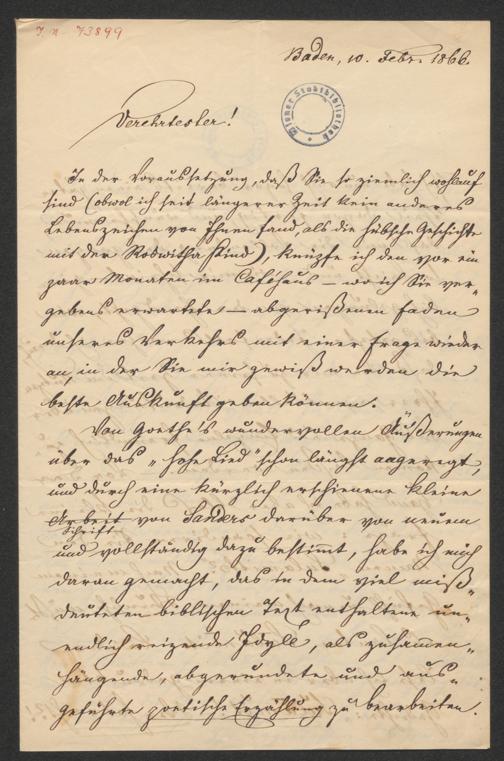 I. N. 73899
Baden, 10. Febr. 1866.
Wiener Stadtbibliothek
Verehrtester!
In der Voraussetzung, daß Sie so ziemlich wohlauf
sind (obwol ich seit längerer Zeit kein anderes
Lebenszeichen von Ihnen fand, als die hübsche Geschichte
mit der Roswitha sind), knüpfe ich den vor ein
paar Monaten im Caféhaus – wo ich Sie ver„
gebens erwartete – abgerißenen Faden
unseres Verkehrs mit einer Frage wieder
an, in der Sie mir gewiß werden die
beste Auskunft geben können.
Von Goethe's wundervollen Äußerungen
über das „hohe Lied" schon längst angeregt,
und durch eine kürzlich erschienene kleine
Arbeit von Sanders darüber von neuem
Schrift
und vollständig dazu bestimmt, habe ich mich
daran gemacht, das in dem viel miß„
deuteten biblischen Text enthaltene un„
endlich reizende Idyll, als zusammen„
hängende, abgerundete und aus„
geführte poetische Erzählung zu bearbeiten.